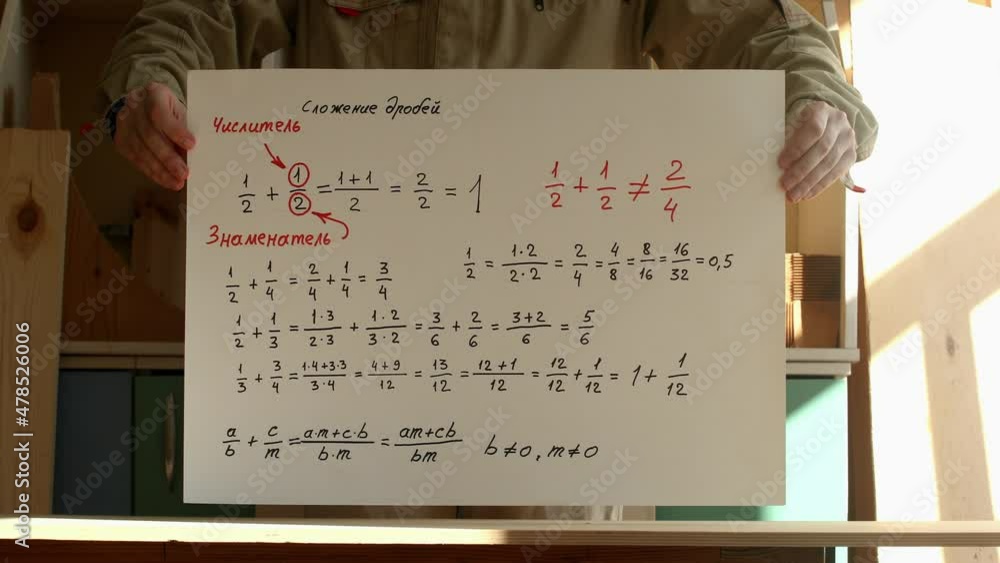 Сложение дробей
Числитель
1/2 + 1/2 = (1+1)/2 = 2/2 = 1
1/2 + 1/2 ≠ 2/4
Знаменатель
1/2 = (1·2)/(2·2) = 2/4 = 4/8 = 8/16 = 16/32 = 0,5
1/2 + 1/4 = 2/4 + 1/4 = 3/4
1/2 + 1/3 = (1·3)/(2·3) + (1·2)/(3·2) = 3/6 + 2/6 = (3+2)/6 = 5/6
1/3 + 3/4 = (1·4+3·3)/(3·4) = (4+9)/12 = 13/12 = (12+1)/12 = 12/12 + 1/12 = 1 + 1/12
a/b + c/m = (a·m+c·b)/(b·m) = (am+cb)/(bm) b≠0, m≠0
Adobe Stock | #478526006
Adobe Stock